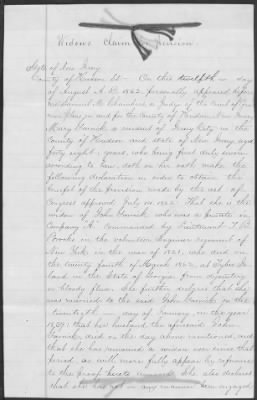 Widows Claim for Pension.
State of New Jersey
County of Hudson SS - On this twelfth day
of August A.D. 1862 personally appeared before
M. Chambers, a Judge of the Court of
in and for the County of Hudson New Jersey
Mary a resident of Jersey City in the
County of Hudson and State of New Jersey aged
forty eight years, who being first duly sworn
according to law doth on her oath make the
following declaration in order to obtain the
benefit of the provision made by the act of
Congress approved July 14 1862. That she is the
widow of John who was a private in
Company A commanded by Lieutenant T. B.
Brooks in the volunteer Engineer regiment of
New York in the war of 1861, who died on
the twenty fourth of 1862, at
land in the State of Georgia from dysentery
or bloody flux. She further declares that she
was married to the said John on the
twentieth day of January, in the year
that her husband the aforesaid John
died on the day above mentioned, and
that she has remained a widow ever since that
period, as will more fully appear by reference
to the proof hereto annexed. She also declares
that she has not in any manner been engaged